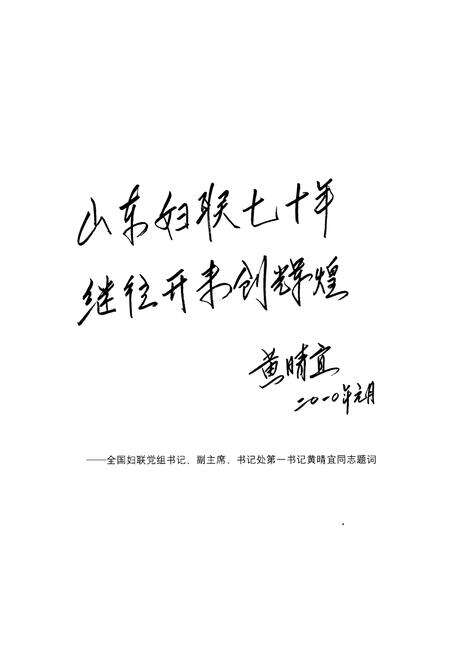 山东妇联七十年
继往开来创辉煌
黄晴宜
二〇一〇年元月
——全国妇联党组书记、副主席、书记处第一书记黄晴宜同志题词